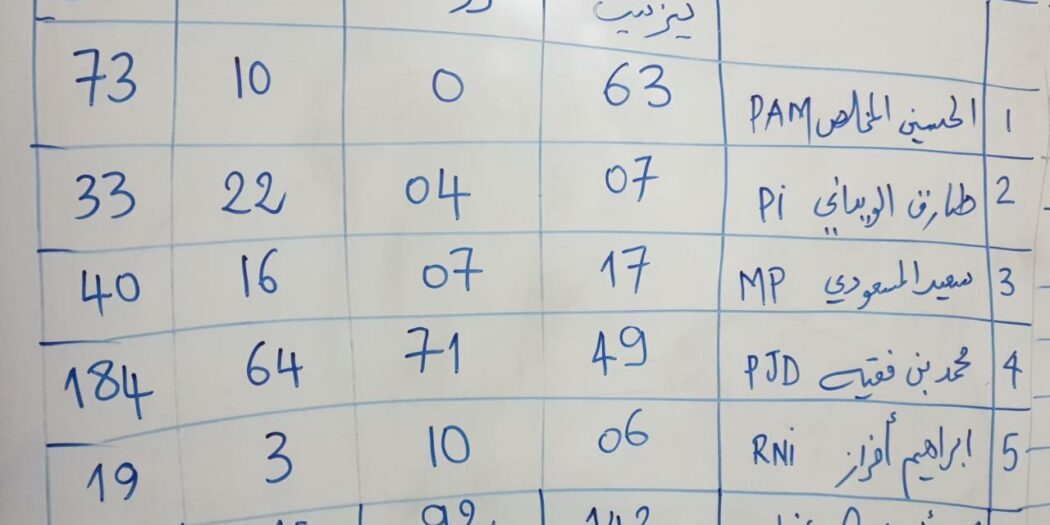 تيزنيت
1 الحسين المخلص PAM 63 0 10 73
2 طارق PI 07 04 22 33
3 سعيد المسعودي MP 17 07 16 40
4 محمد بن فقيه PJD 49 71 64 184
5 ابراهيم أفزاز RNI 06 10 3 19
142 92